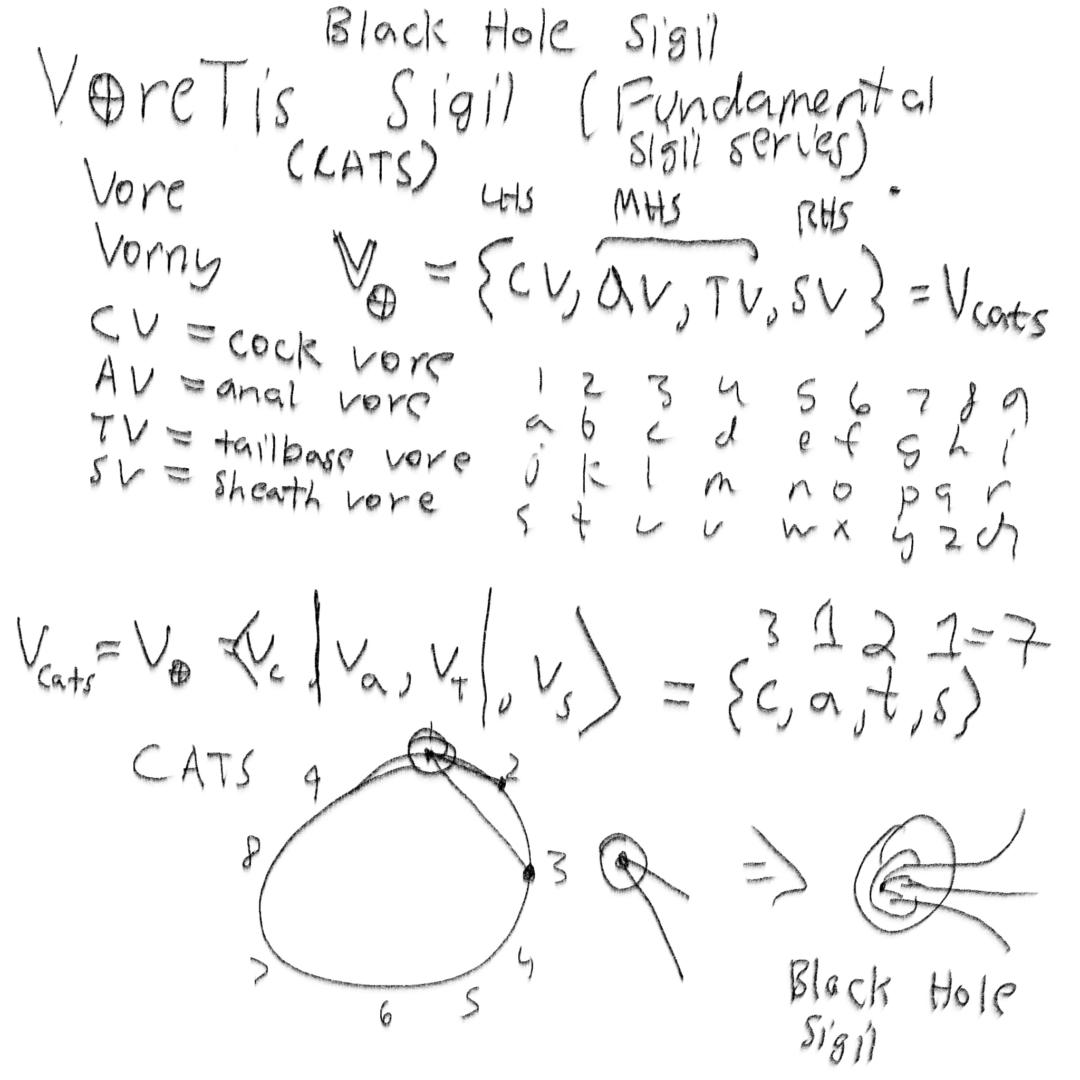 Black Hole Sigil
V⊕reTis Sigil (Fundamental
sigil series)
(CATS)
Vore
Vorny
LHS MHS RHS
V⊕ = {CV, AV, TV, SV} = Vcats
CV = cock vore
AV = anal vore
TV = tailbase vore
SV = sheath vore
1 2 3 4 5 6 7 8 9
a b c d e f g h i
j k l m n o p q r
s t u v w x y z
3 1 2 1 = 7
Vcats = V⊕ <Vc | Va, Vt |, Vs> = {c, a, t, s}
CATS
1
9 2
8 3
7 4
6 5
=>
Black Hole
Sigil